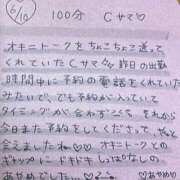 6/10 100分 Cサマ♡
オキニトークをちょこちょこ送って
くれていたCサマ 昨日の出勤
時間中に予約の電話をくれていた
みたいで、でも予約が入っていて
タイミングが合わず それから
今日また予約をしてくださって、やっと
会えましたね♡ オキニトークとの
ギャップにドキドキしっぱなしの
あやめでした
♡あやめ♡